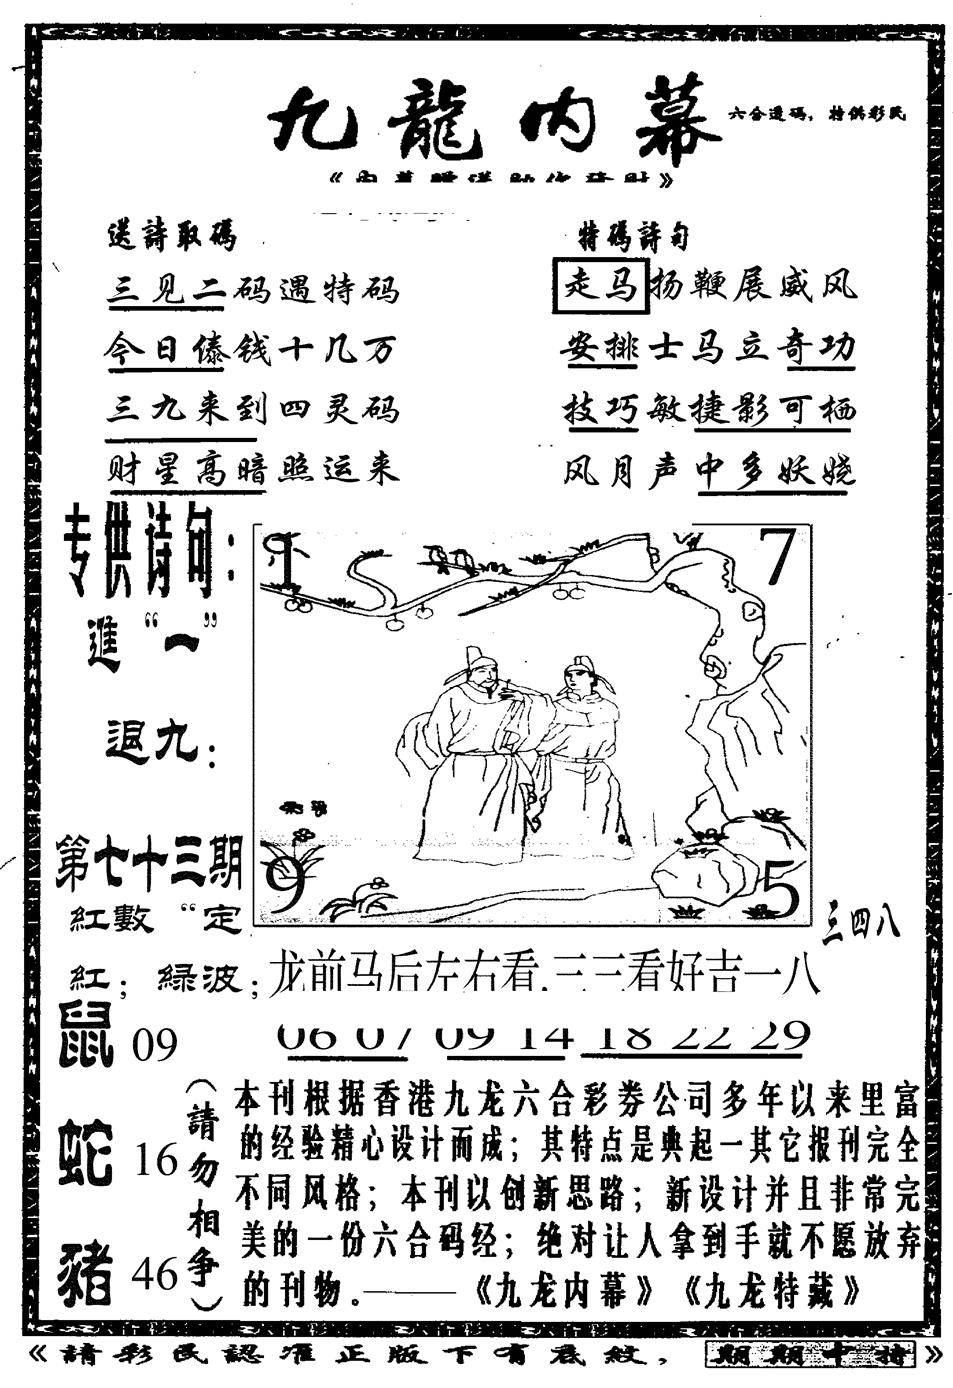 九龍内幕
六合透码，特供彩民
送詩取碼
三见二码遇特码
今日傣钱十几万
三九来到四灵码
财星高暗照运来
特碼詩句
走马扬鞭展威风
安排士马立奇功
技巧敏捷影可栖
风月声中多妖娆
专供诗句：
進“一”
退九：
第七十三期
紅數“定
紅；綠波；
1
7
9
5
三四八
龙前马后左右看.三三看好吉一八
06 07 09 14 18 22 29
鼠 09
蛇 16
豬 46
（請勿相争）
本刊根据香港九龙六合彩券公司多年以来里富
的经验精心设计而成；其特点是典起一其它报刊完全
不同风格；本刊以创新思路；新设计并且非常完
美的一份六合码经；绝对让人拿到手就不愿放弃
的刊物。——《九龙内幕》《九龙特藏》
《請彩民認准正版下有底紋，期期中特》